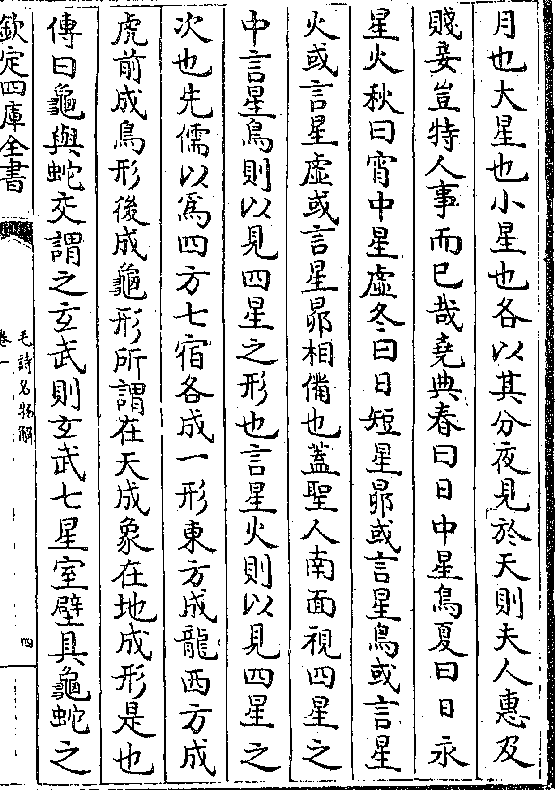 月也大星也小星也各以其分夜見於天則夫人惠及
賤妾豈特人事而已哉堯典春曰日中星鳥夏曰日永
星火秋曰宵中星虛冬曰日短星昴或言星鳥或言星
火或言星虛或言星昴相備也蓋聖人南面視四星之
中言星鳥則以見四星之形也言星火則以見四星之
次也先儒以爲四方七宿各成一形東方成龍西方成
虎前成鳥形後成龜形所謂在天成象在地成形是也
傳曰龜與蛇交謂之玄武則玄武七星室壁具龜蛇之
欽定四庫全書
毛詩名物解
卷一
四